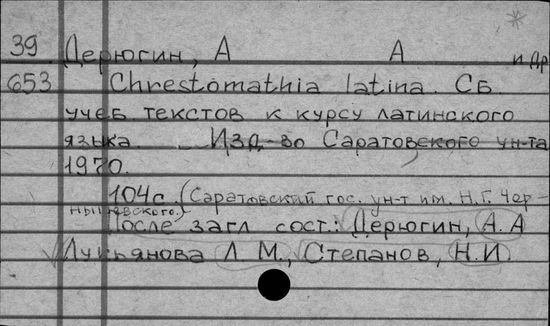 39 Дерюгин, А А и др
653 Chrestomathia latina. Сб
учеб текстов к курсу латинского
языка Изд-во Саратовского ун-та
1970.
104с. (Саратовский гос. ун-т им. Н.Г. Чер-
нышевского.)
После загл сост.: Дерюгин, А.А
Лукьянова Л М., Степанов, Н.И